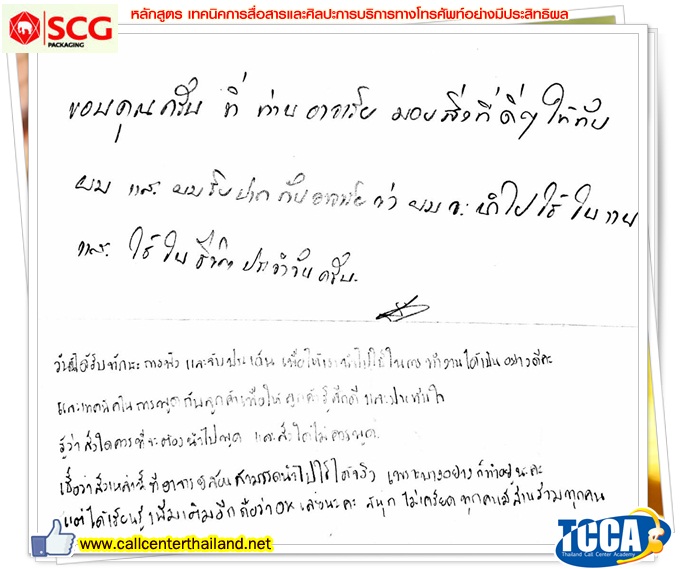 SCG
PACKAGING
หลักสูตร เทคนิคการสื่อสารและศิลปะการบริการทางโทรศัพท์อย่างมีประสิทธิผล
ขอบคุณครับ ที่ ท่าน อาจารย์ มอบสิ่งที่ดีๆ ให้กับ
ผม และ ผมรับปาก กับอาจารย์ ว่า ผมจะ นำไปใช้ ในงาน
และ ใช้ในชีวิตประจำวันครับ
วันนี้ได้รับทักษะการฟัง และจับประเด็น เพื่อให้เรานำไปใช้ในการทำงานได้เป็นอย่างดีค่ะ
และเทคนิคในการพูดกับลูกค้าเพื่อให้ลูกค้ารู้สึกดีและประทับใจ
รู้ว่าสิ่งใดควรที่จะต้องนำไปพูด และสิ่งใดไม่ควรพูด
เชื่อว่าสิ่งเหล่านี้ที่อาจารย์สอนสามารถนำไปใช้ได้จริง เพราะบางอย่างก็ทำอยู่นะคะ
แต่ได้เรียนรู้เพิ่มเติมอีก ถือว่าOKเลยนะคะ สนุก ไม่เครียด ทุกคนมีส่วนร่วมทุกคน
www.callcenterthailand.net
TCCA
Thailand Call Center Academy